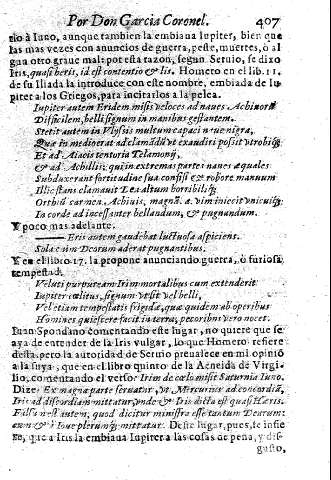 Por Don Garcia Coronel. 407
tio à Iuno, aunque tambien la embiaua Iupiter, bien que
las mas vezes con anuncios de guerra, peste, muertes, ò al
gun otro graue mal: por esta razon, segun Seruio, se dixo
Iris, quasi heris, id est contentio & lis. Homero en el lib. 11.
de su Iliada la introduce con este nombre, embiada de Iu
piter a los Griegos, para incitarlos a la pelea.
Iupiter autem Eridem misit veloces ad naues Achiuorũ
Difficilem, belli signum in manibus gestantem.
Stetit autem in Vlyssis multum capaci naue nigra,
Quæ in medio erat ad clamãdũ vt exaudiri possit vtrobiq;
Et ad Aiacis tentoria Telamonij,
& ad Achillis: qui in extremas partes naues æquales
Subduxerant fortitudine sua confisi & robore manuum
Illic stans clamauit Dea altum horribiliq;
Orthiũ carmen. Achiuis, magnã. æ vim iniecit vnicuiq;
In corde ad incessanter bellandum, & pugnandum.
Y poco mas adelante.
Eris autem gaudebat luctuosa aspiciens.
Sola enim Deorum aderat pugnantibus.
Y en el libro 17. la propone anunciando guerra, ò furiosa
tempestad.
Veluti purpuream Irim mortalibus cum extenderit
Iupiter cœlitus, signum vt sit vel belli,
Vel etiam tempestatis frigidæ, quæ quidem ab operibus
Homines quiescere facit in terra, pecoribus vero nocet.
Iuan Spondano comentando este lugar, no quiere que se
aya de entender de la Iris vulgar, lo que Homero refiere
desta, pero la autoridad de Seruio preualece en mi opiniõ
a la suya, que en el libro quinto de la Aeneida de Virgi-
lio, comentando el verso: Irim de cælo misit Saturnia Iuno.
Dize: Ex magna parte seruatur, vt Mercurius ad concordiã,
Iris ad discordiam mittatur, vnde & Iris dicta est quasi Hæris.
Falsũ est autem, quod dicitur ministra esse tantum Dearum:
nam & à Ioue plerumq; mittatur. Deste lugar, pues, se infie
re, que a Iris la embiaua Iupiter a las cosas de pena, y dis-
gusto,